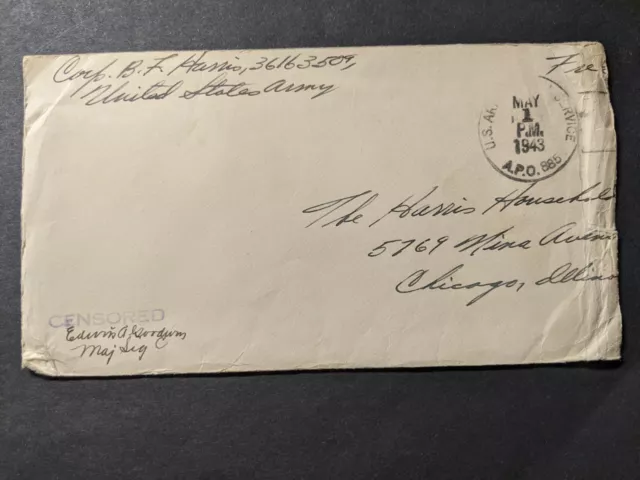 Corp. B. F. Harris, 36163509,
United States Army
Free
U.S. AR SERVICE
MAY
1
P.M.
1943
A.P.O. 885
The Harris Household
5769 Nina Avenue
Chicago, Illino
CENSORED
Edwin A. Goodwin
Maj Sig